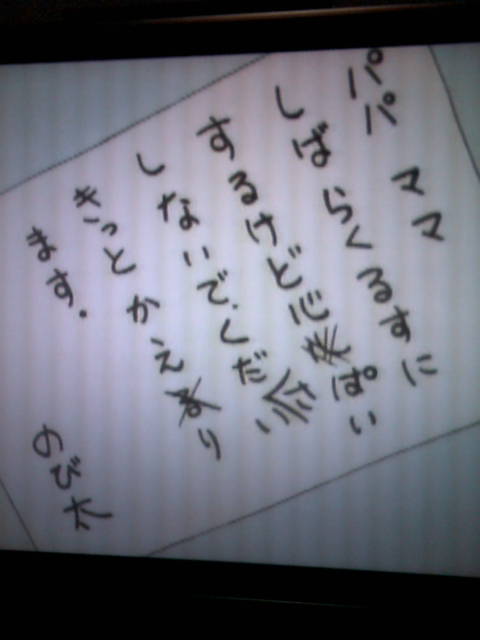 パパ ママ
しばらくるすに
するけど心ぱい
しないで.くだ
い
きっとかえり
ます.
のび太